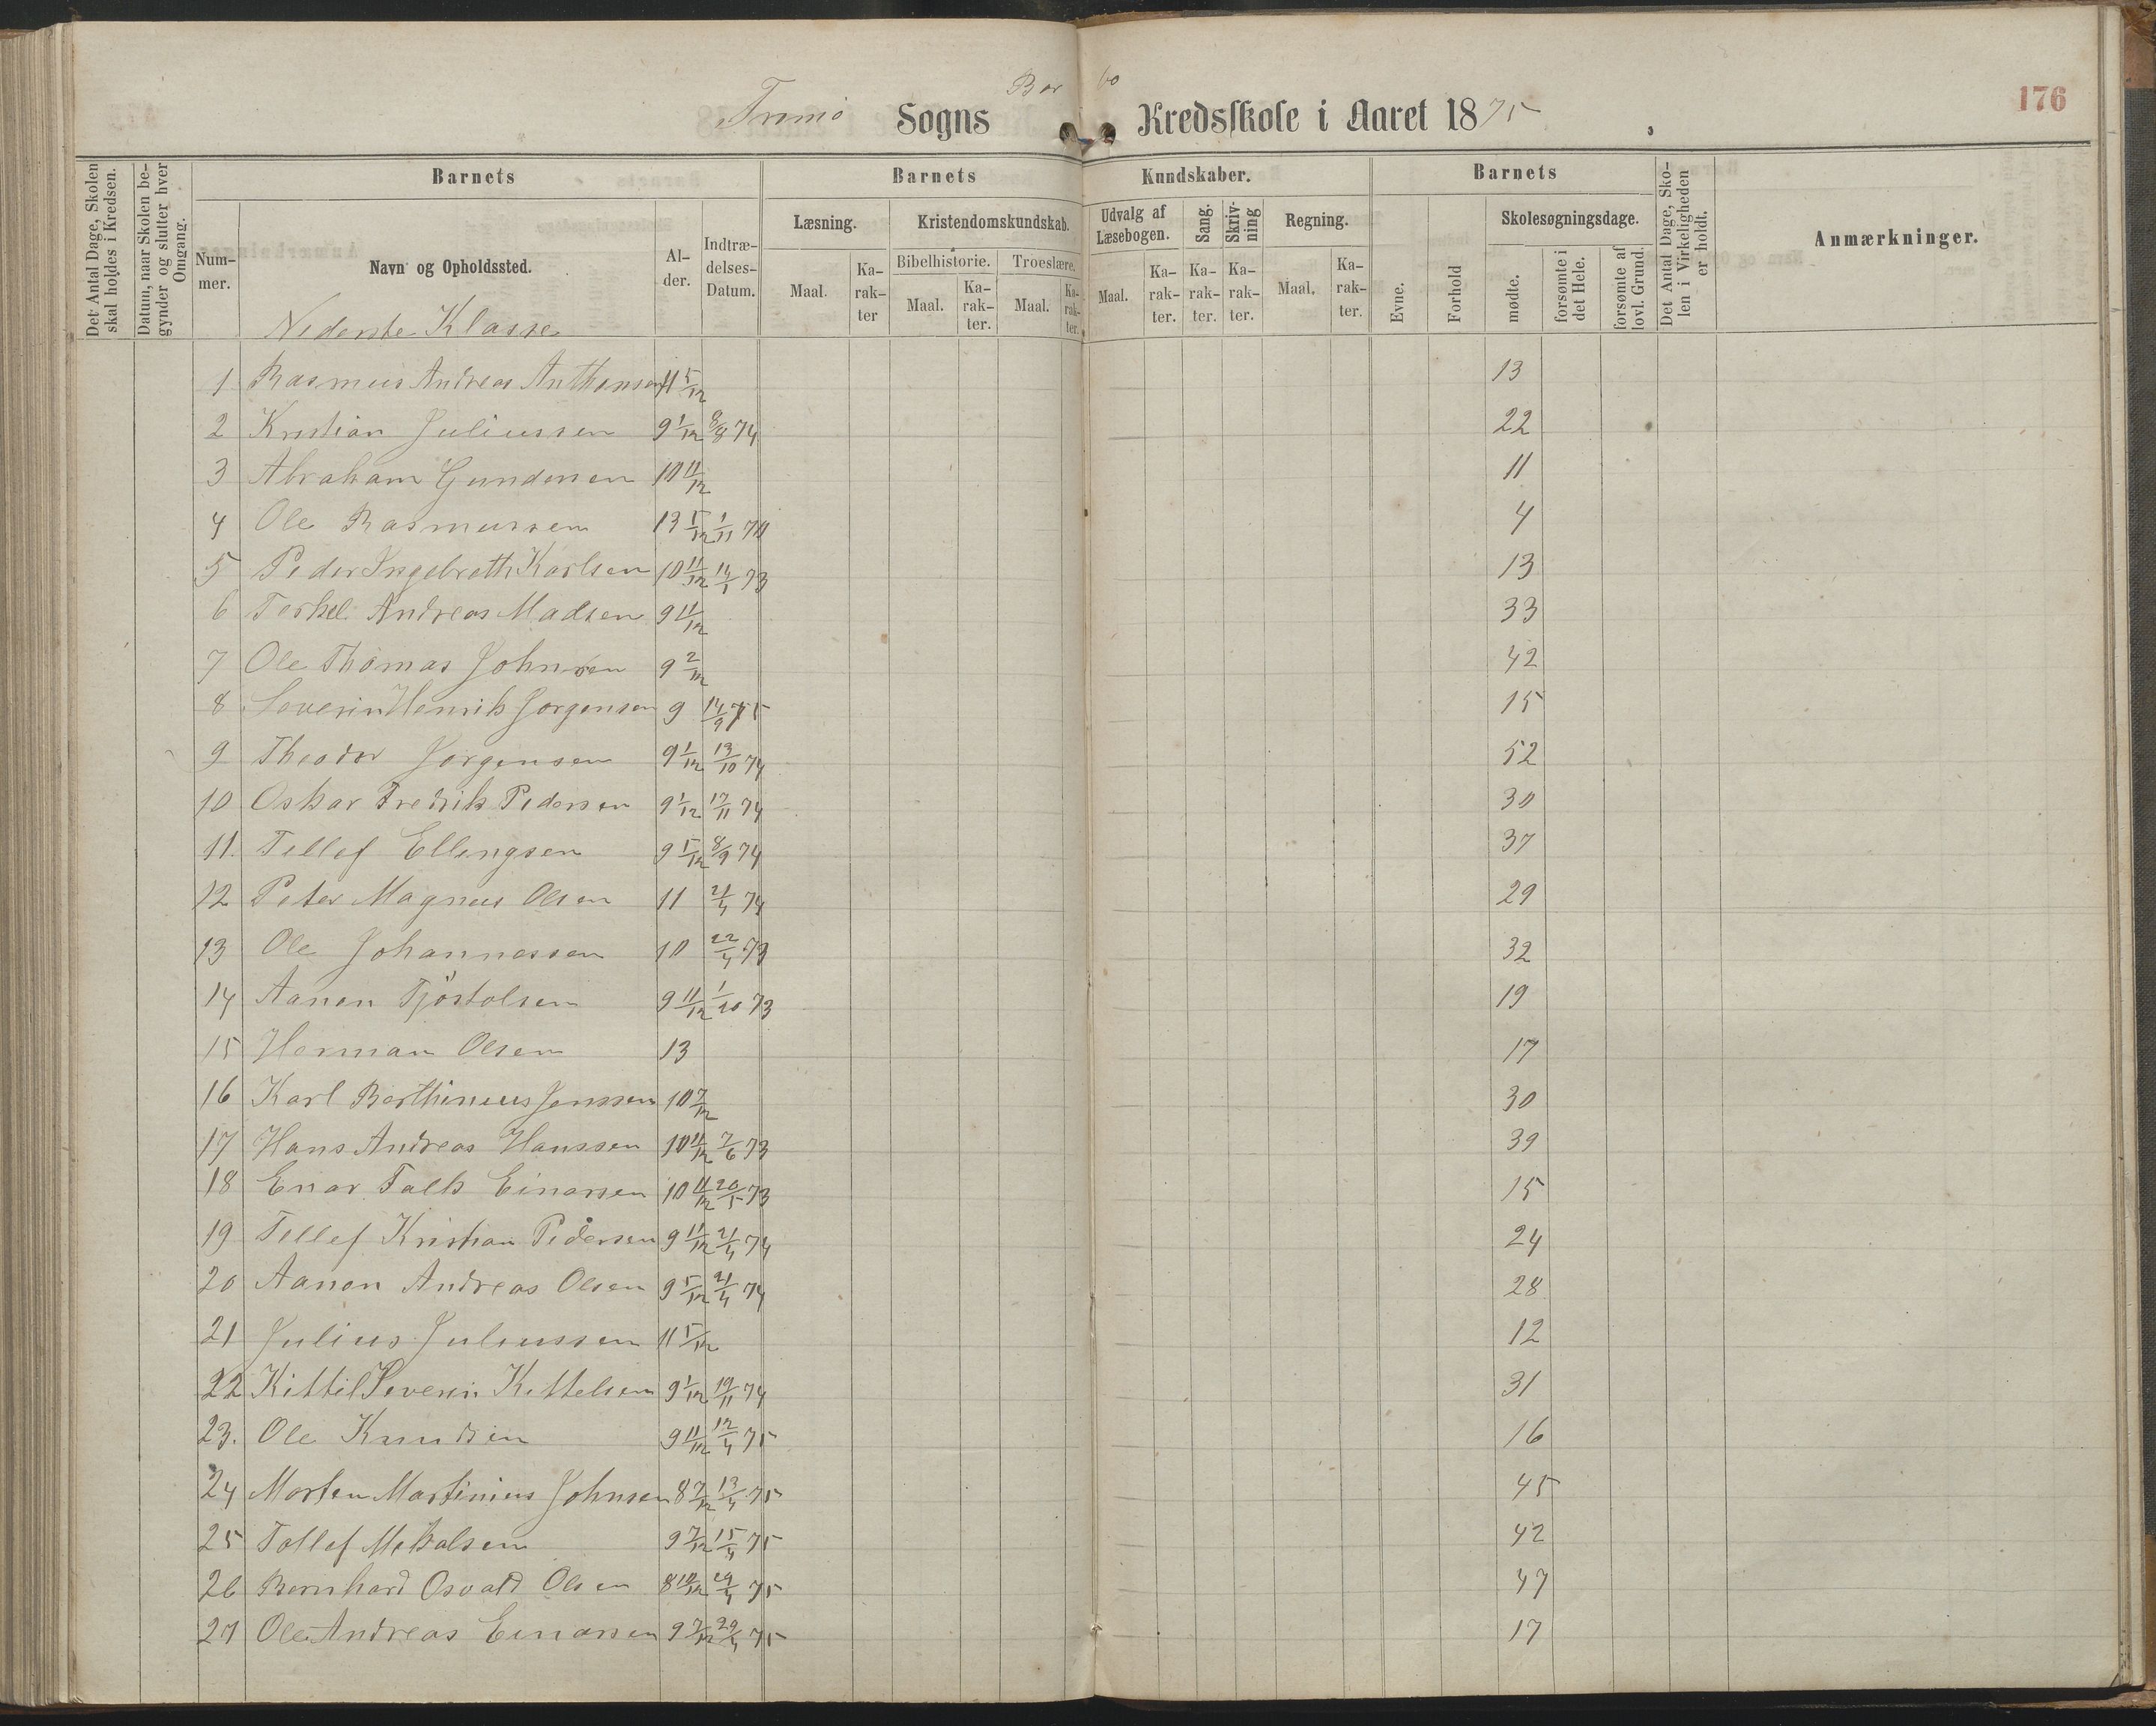 176
Tromö Sogns Bor bo Kredsskole i Aaret 1875.
Det Antal Dage, Skolen skal holdes i Kredsen.
Datum, naar Skolen begynder og slutter hver Omgang.
Barnets
Nummer.
Navn og Opholdssted.
Alder.
Indtrædelses-Datum.
Barnets Kundskaber.
Læsning.
Maal. Karakter
Kristendomskundskab.
Bibelhistorie. Troeslære.
Maal. Karakter. Maal. Karakter.
Udvalg af Læsebogen.
Maal. Karakter.
Sang. Karakter.
Skrivning Karakter.
Regning.
Maal. Karakter.
Barnets
Evne.
Forhold
Skolesøgningsdage.
mødte.
forsømte i det Hele.
forsømte af lovl. Grund.
Det Antal Dage, Skolen i Virkeligheden er holdt.
Anmærkninger.
Nederste Klasse
1 Rasmus Andreas Anthonsen 11 5/12 13
2 Kristian Juliussen 9 1/12 8/9 74 22
3 Abraham Gundersen 10 11/12 11
4 Ole Rasmussen 13 5/12 1/11 70 4
5 Peder Ingebreth Karlsen 10 11/12 14/1 73 13
6 Terkel Andreas Madsen 9 11/12 33
7 Ole Thomas Johnsen 9 2/12 42
8 Severin Henrik Jorgensen 9 14/9 75 15
9 Theodor Jorgensen 9 1/12 13/10 74 52
10 Oskar Fredrik Pedersen 9 1/12 17/11 74 30
11. Tellef Ellingsen 9 5/12 8/9 74 37
12 Peter Magnus Olsen 11 21/4 74 29
13 Ole Johannessen 10 22/4 73 32
14 Aanon Tjöstolsen 9 11/12 1/10 73 19
15 Herman Olsen 13 17
16 Karl Berthinius Jenssen 10 7/12 30
17 Hans Andreas Hanssen 10 11/12 7/6 73 39
18 Enar Falk Einarsen 10 11/12 20/5 73 15
19 Tellef Kristian Pedersen 9 11/12 21/4 74 24
20 Aanon Andreas Olsen 9 5/12 21/4 74 28
21 Julius Juliussen 11 5/12 12
22 Kittil Severin Kittelsen 9 1/12 19/11 74 31
23. Ole Knudsen 9 11/12 12/4 75 16
24 Morten Martinius Johnsen 8 7/12 13/4 75 45
25 Tollef Mekalsen 9 7/12 15/4 75 42
26 Bernhard Osvald Olsen 8 10/12 29/4 75 47
27 Ole Andreas Einarsen 9 7/12 29/4 75 17